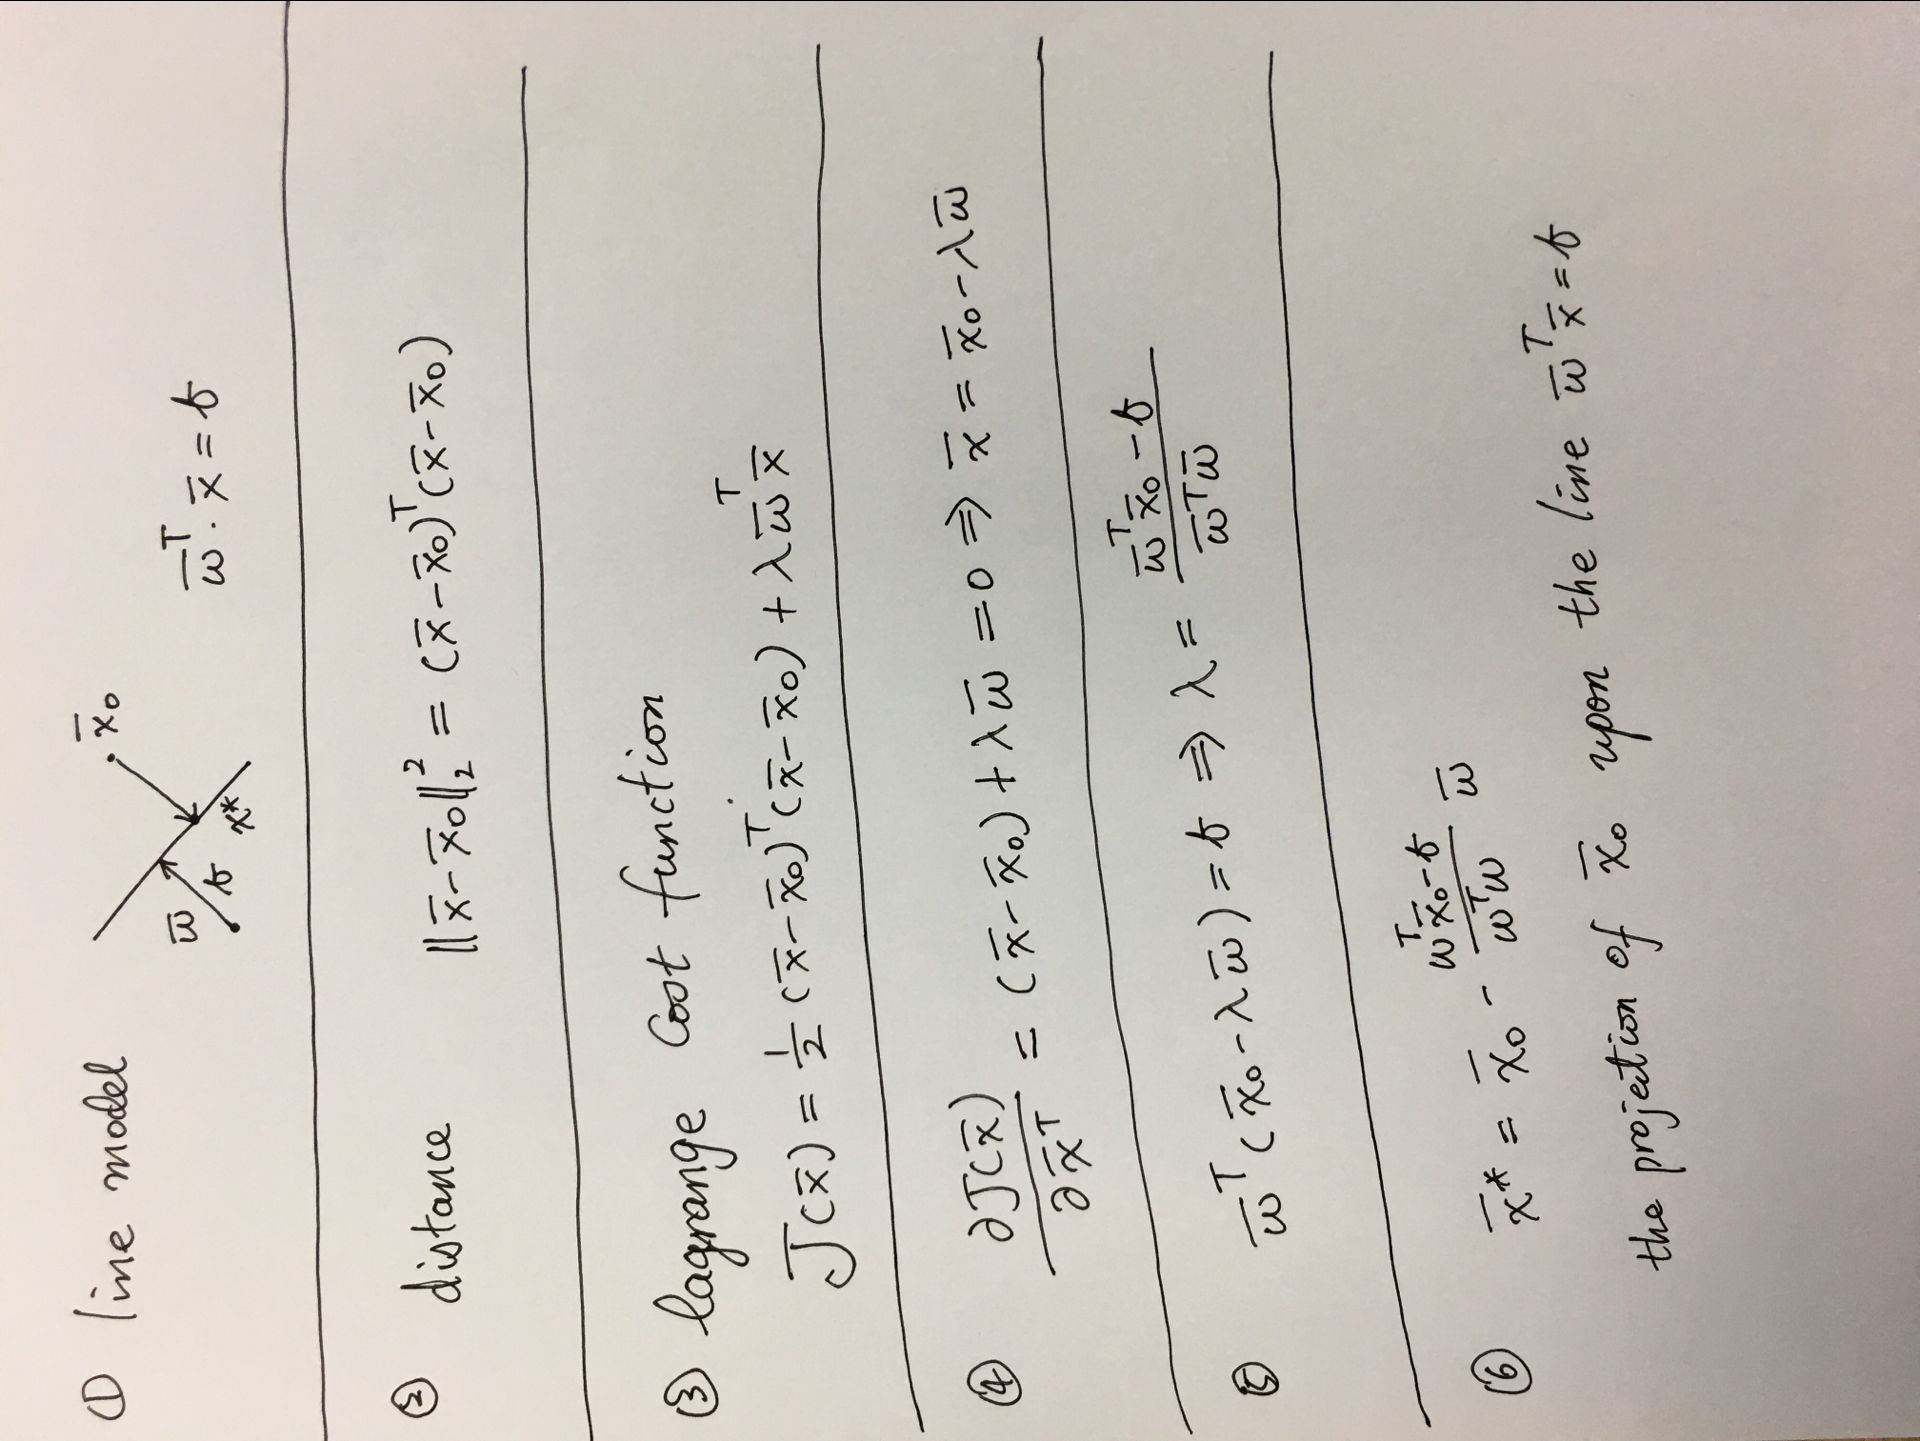 ① line model
x̄₀
w̄
b
x*
w̄ᵀ · x̄ = b
② distance ‖x̄ - x̄₀‖₂² = (x̄ - x̄₀)ᵀ(x̄ - x̄₀)
③ lagrange Cost function
J(x̄) = 1/2 (x̄ - x̄₀)ᵀ(x̄ - x̄₀) + λ w̄ᵀ x̄
④ ∂J(x̄)/∂x̄ᵀ = (x̄ - x̄₀) + λ w̄ = 0 ⇒ x̄ = x̄₀ - λ w̄
⑤ w̄ᵀ(x̄₀ - λ w̄) = b ⇒ λ = (w̄ᵀx̄₀ - b)/(w̄ᵀw̄)
⑥ x̄* = x̄₀ - (wᵀx̄₀ - b)/(wᵀw) w̄
the projection of x̄₀ upon the line w̄ᵀx̄ = b